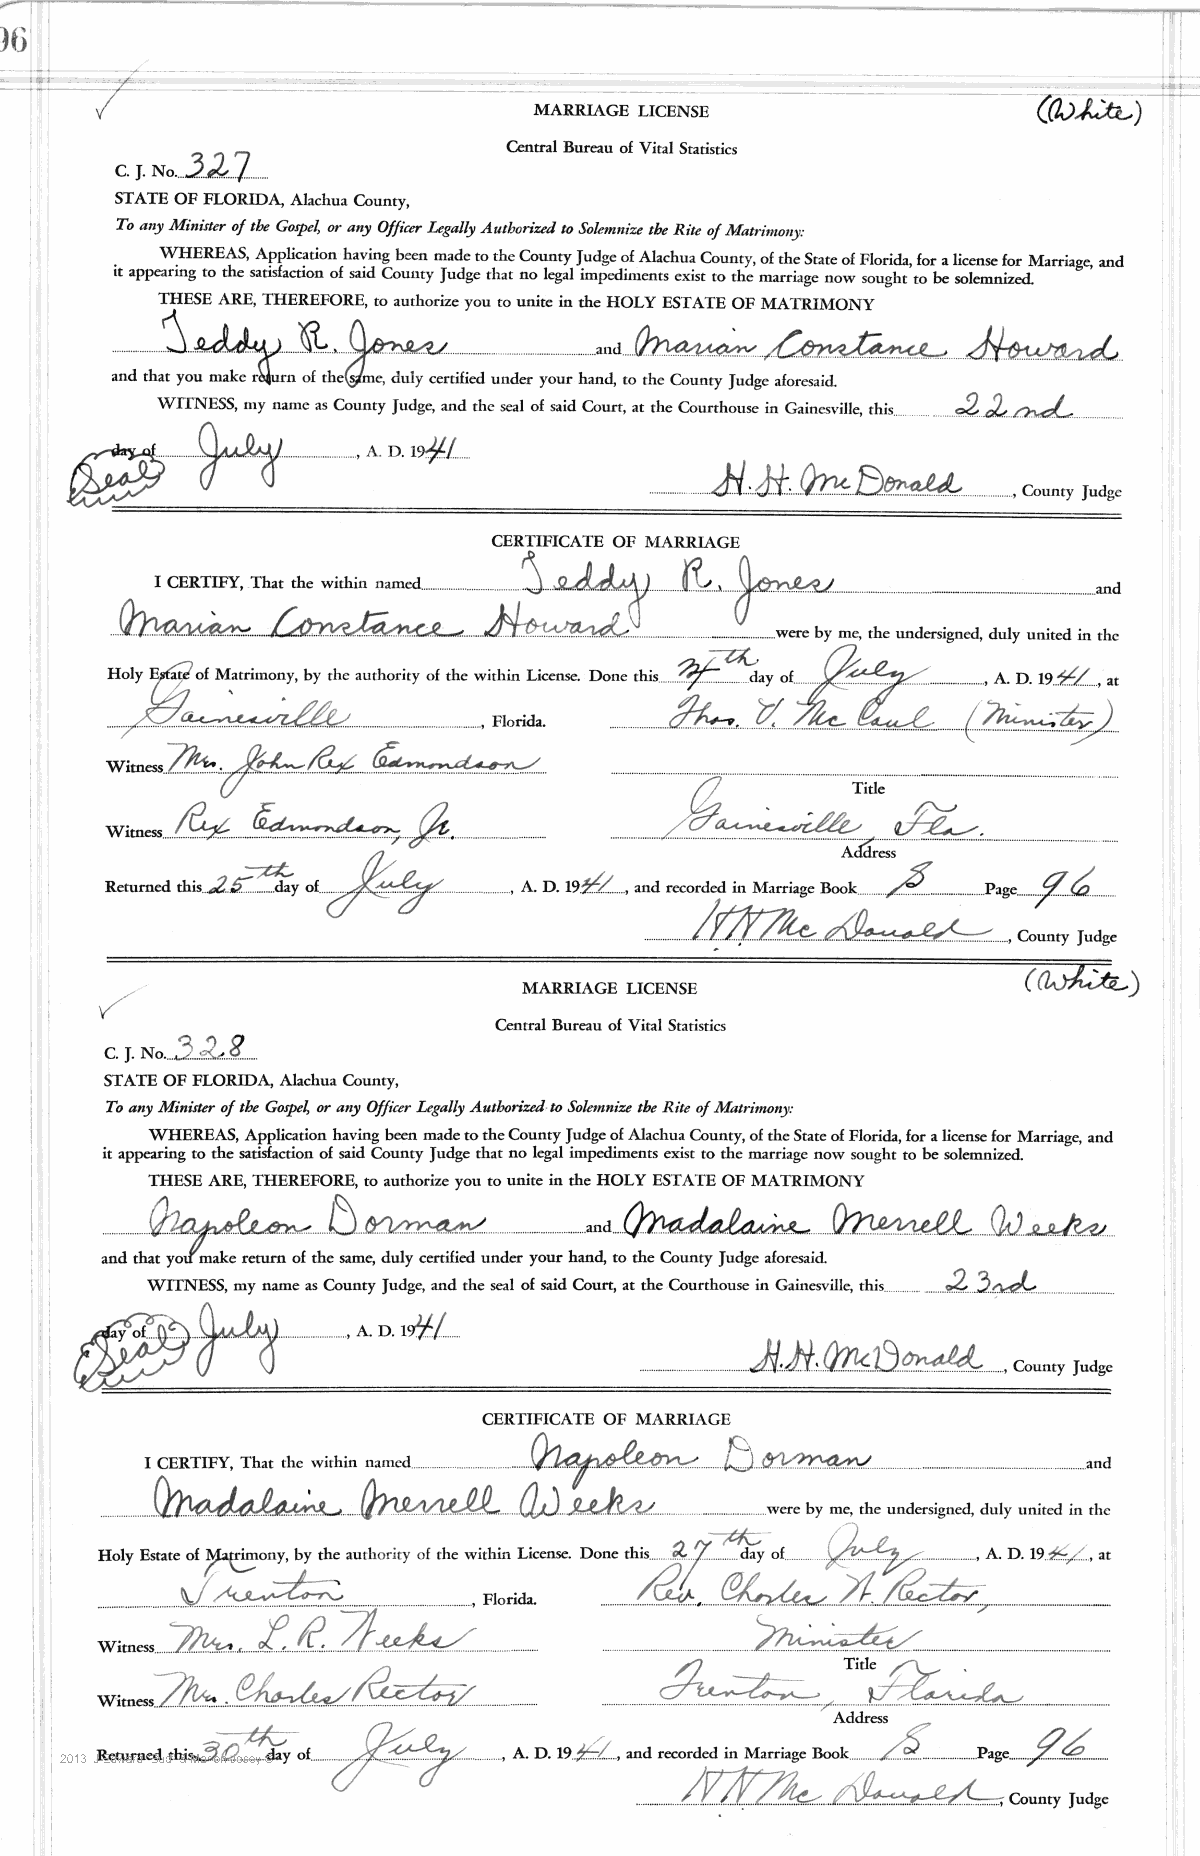 96
MARRIAGE LICENSE (White)
Central Bureau of Vital Statistics
C. J. No. 327
STATE OF FLORIDA, Alachua County,
To any Minister of the Gospel, or any Officer Legally Authorized to Solemnize the Rite of Matrimony:
WHEREAS, Application having been made to the County Judge of Alachua County, of the State of Florida, for a license for Marriage, and
it appearing to the satisfaction of said County Judge that no legal impediments exist to the marriage now sought to be solemnized.
THESE ARE, THEREFORE, to authorize you to unite in the HOLY ESTATE OF MATRIMONY
Teddy R. Jones and Marian Constance Howard
and that you make return of the same, duly certified under your hand, to the County Judge aforesaid.
WITNESS, my name as County Judge, and the seal of said Court, at the Courthouse in Gainesville, this 22nd
day of July, A. D. 1941
(Seal)
H. H. McDonald, County Judge
CERTIFICATE OF MARRIAGE
I CERTIFY, That the within named Teddy R. Jones and
Marian Constance Howard were by me, the undersigned, duly united in the
Holy Estate of Matrimony, by the authority of the within License. Done this th day of July, A. D. 1941, at
Gainesville, Florida. Thos. V. McCaul (Minister)
Witness Mrs. John Rex Edmondson
Title
Witness Rex Edmondson, Jr. Gainesville, Fla.
Address
Returned this 25th day of July, A. D. 1941, and recorded in Marriage Book S Page 96
H H McDonald, County Judge
MARRIAGE LICENSE (White)
Central Bureau of Vital Statistics
C. J. No. 328
STATE OF FLORIDA, Alachua County,
To any Minister of the Gospel, or any Officer Legally Authorized to Solemnize the Rite of Matrimony:
WHEREAS, Application having been made to the County Judge of Alachua County, of the State of Florida, for a license for Marriage, and
it appearing to the satisfaction of said County Judge that no legal impediments exist to the marriage now sought to be solemnized.
THESE ARE, THEREFORE, to authorize you to unite in the HOLY ESTATE OF MATRIMONY
Napoleon Dorman and Madalaine Merrell Weeks
and that you make return of the same, duly certified under your hand, to the County Judge aforesaid.
WITNESS, my name as County Judge, and the seal of said Court, at the Courthouse in Gainesville, this 23rd
day of July, A. D. 1941
(Seal)
H. H. McDonald, County Judge
CERTIFICATE OF MARRIAGE
I CERTIFY, That the within named Napoleon Dorman and
Madalaine Merrell Weeks were by me, the undersigned, duly united in the
Holy Estate of Matrimony, by the authority of the within License. Done this 27th day of July, A. D. 1941, at
Trenton, Florida. Rev. Charles W. Rector,
Witness Mrs. L. R. Weeks Minister
Title
Witness Mrs. Charles Rector Trenton, Florida
Address
2013
Returned this 30th day of July, A. D. 1941, and recorded in Marriage Book S Page 96
H H McDonald, County Judge